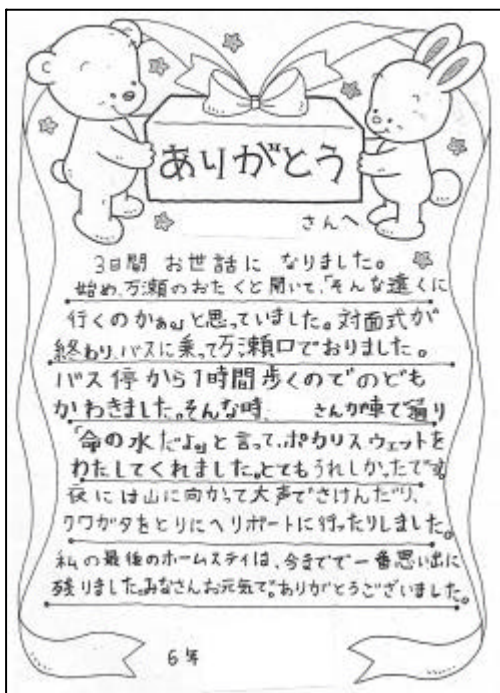 ありがとう
さんへ
3日間 お世話に なりました。
始め、万瀬のおたくと聞いて、「そんな遠くに
行くのかぁ。」と思っていました。対面式が
終わり、バスに乗って万瀬口でおりました。
バス停から1時間歩くのでのども
かわきました。そんな時、 さんが車で通り
「命の水だよ。」と言って、ポカリスウェットを
わたしてくれました。とてもうれしかったです。
夜には山に向かって大声でさけんだり、
クワガタをとりにヘリポートに行ったりしました。
私の最後のホームステイは、今までで一番思い出に
残りました。みなさんお元気で。ありがとうございました。
6年